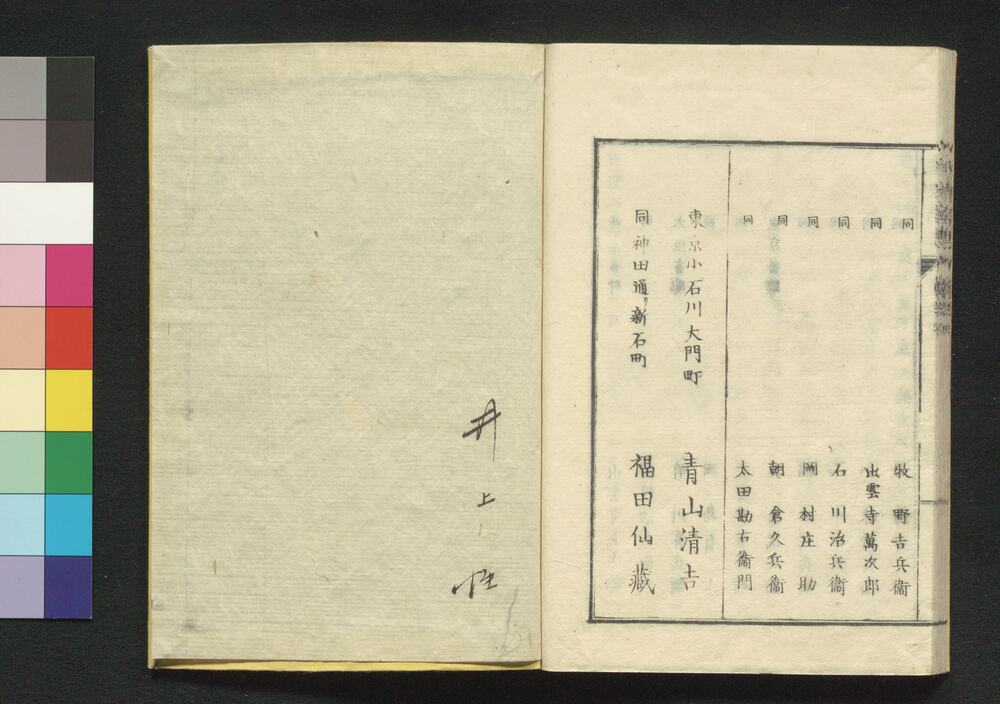 同 牧野吉兵衛
同 出雲寺萬次郎
同 石川治兵衛
同 岡村庄助
同 朝倉久兵衛
同 太田勘右衛門
東京小石川大門町 青山清吉
同神田通リ新石町 福田仙蔵
井上